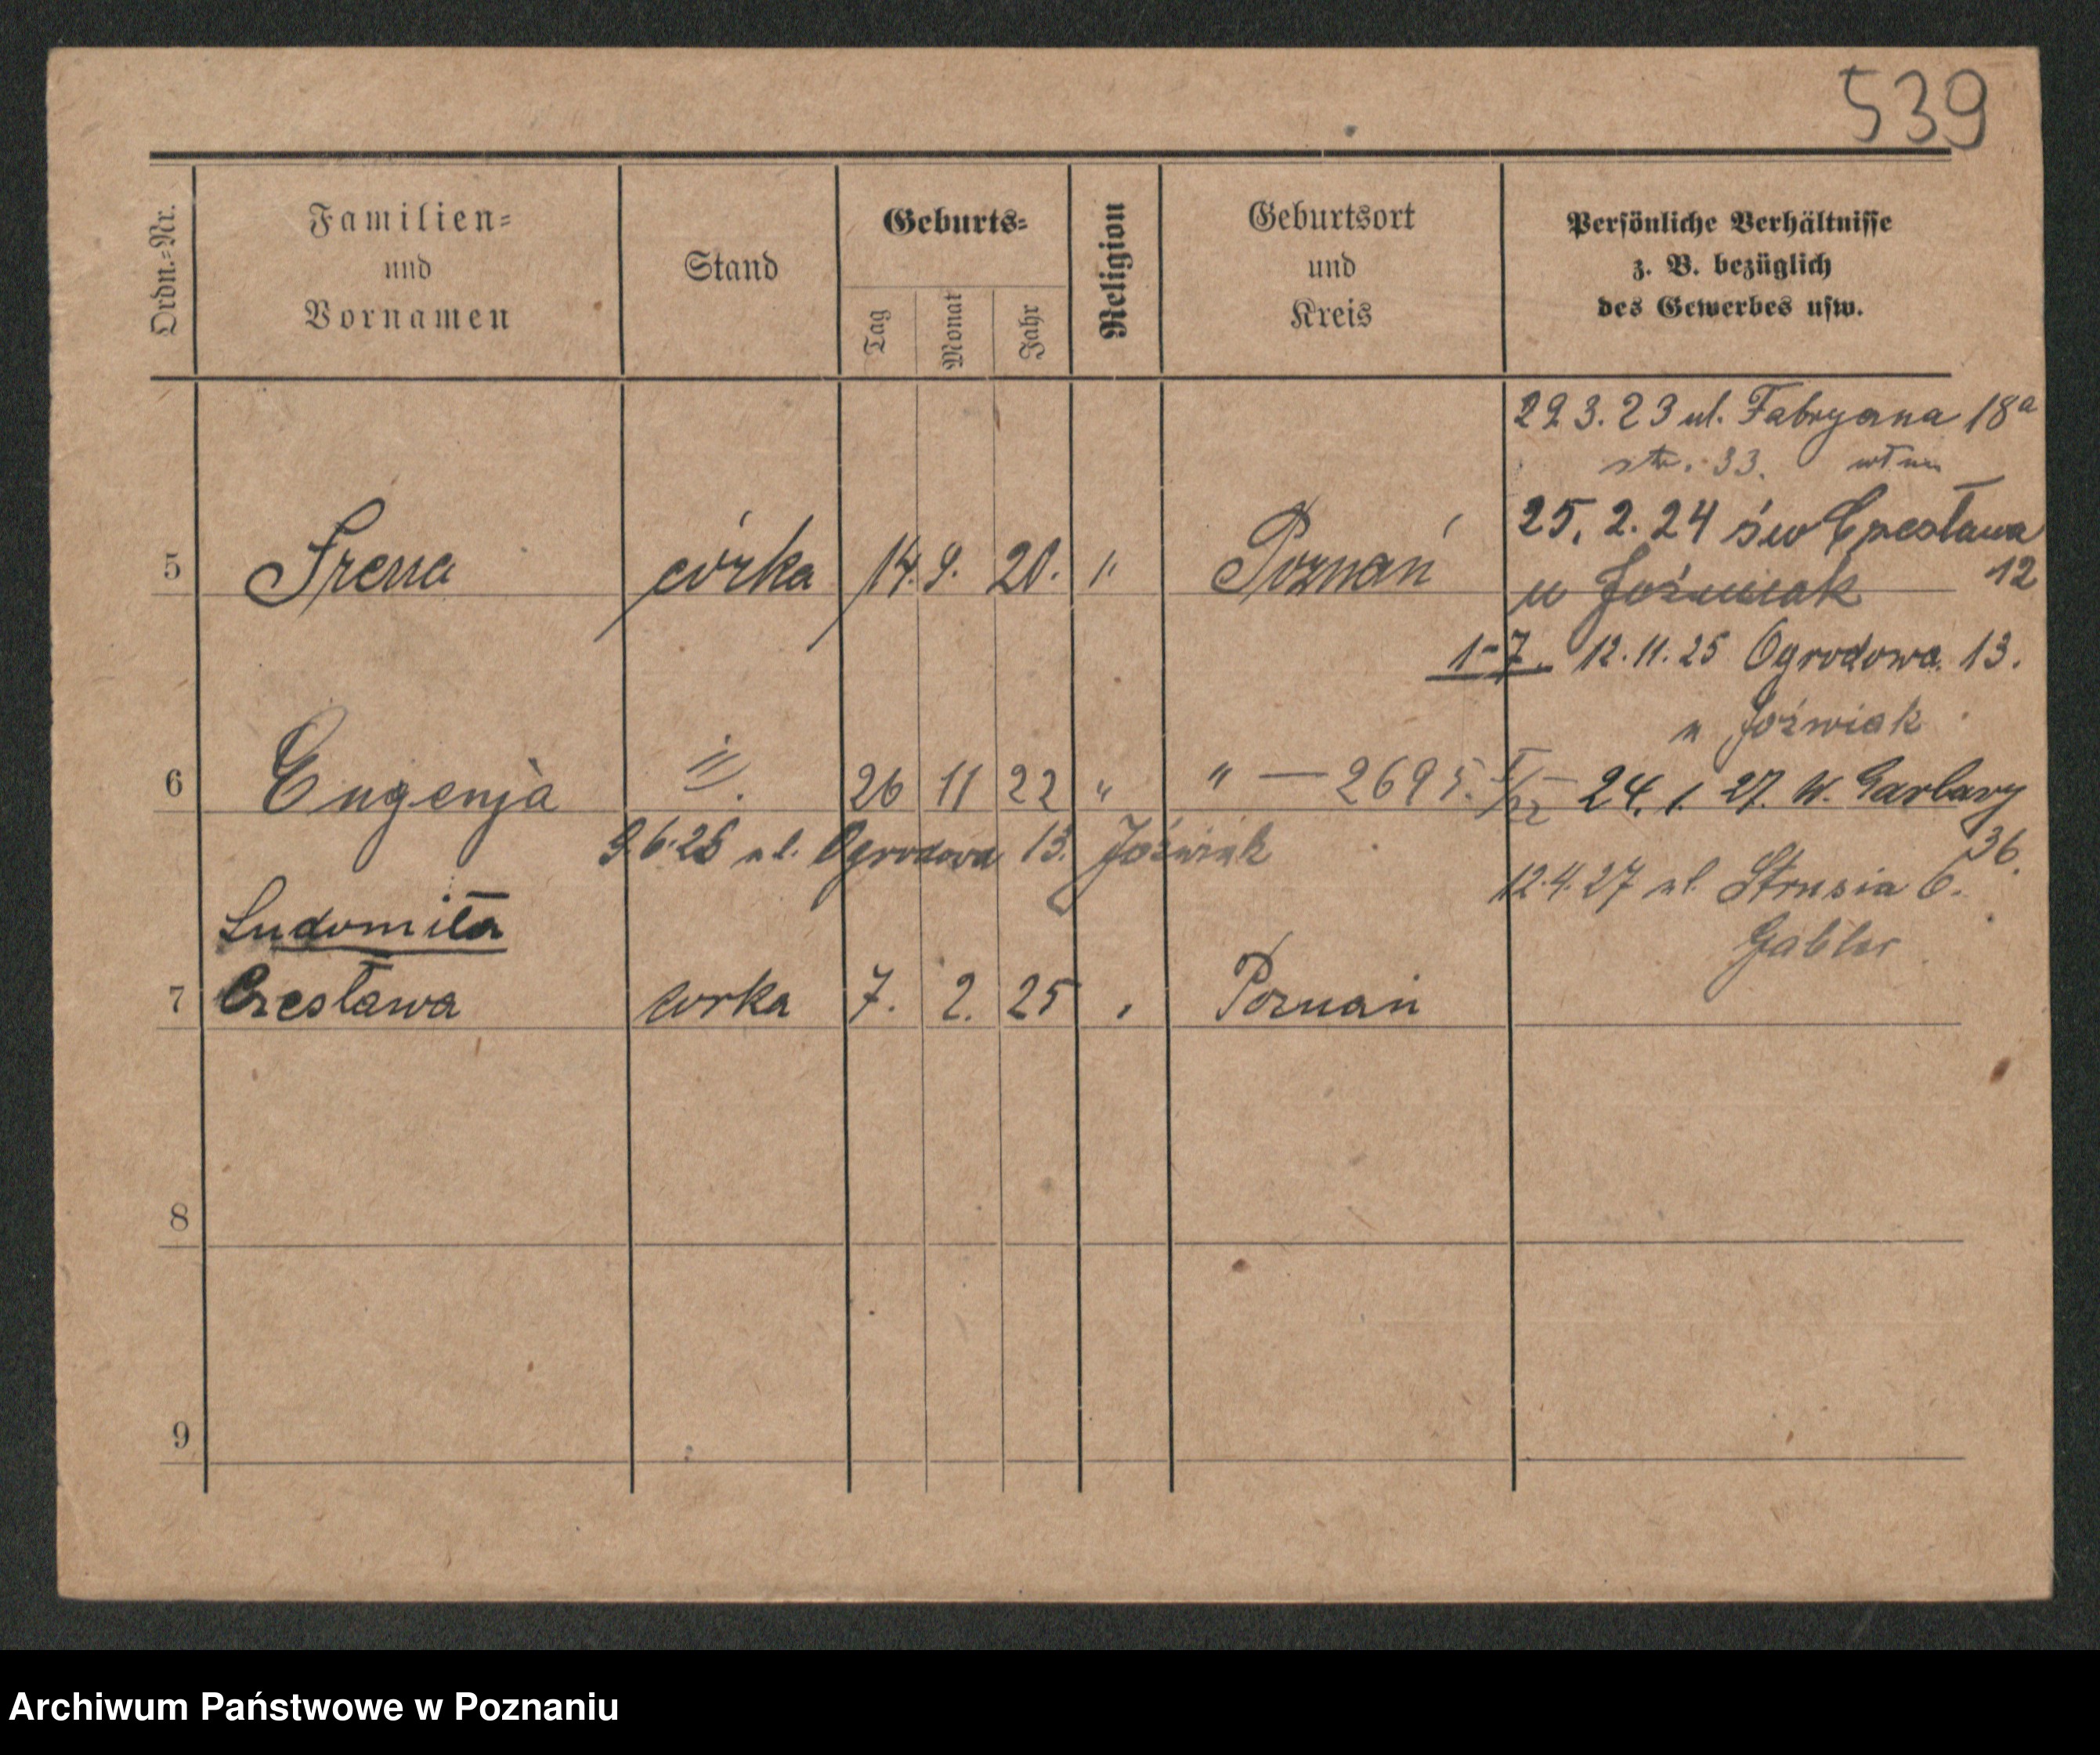 539
Ordn.=Nr.
Familien=
und
Vornamen
Stand
Geburts=
Tag
Monat
Jahr
Religion
Geburtsort
und
Kreis
Persönliche Verhältnisse
z. B. bezüglich
des Gewerbes usw.
29. 3. 23 ul. Fabryczna 18a
str. 33.
25. 2. 24 św Czesława
12
5 Irena córka 14. 9. 20. " Poznań u Jóźwiak
1-7. 12. 11. 25 Ogrodowa. 13.
u Jóźwiak
6 Eugenja " 26 11 22 " " — 2695. 24. 1. 27. W. Garbary
36.
9.6.26 ul. Ogrodowa 13. Jóźwiak
12.4.27 ul. Strusia 6.
Gabler
Ludomiła
7 Czesława córka 7. 2. 25 " Poznań
8
9
Archiwum Państwowe w Poznaniu